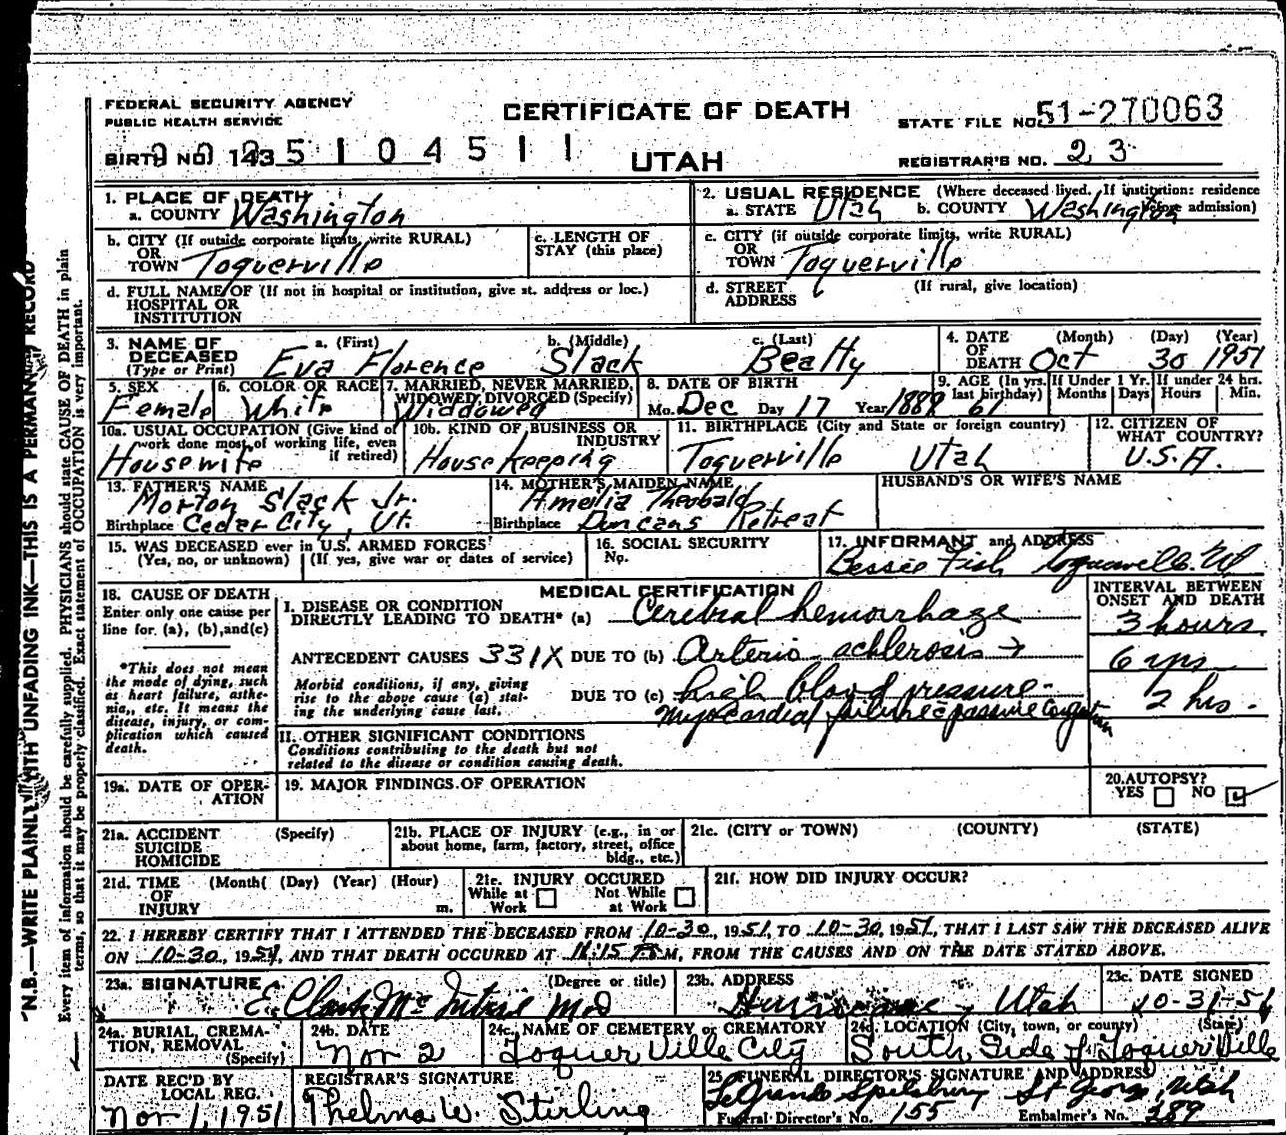 FEDERAL SECURITY AGENCY
PUBLIC HEALTH SERVICE
CERTIFICATE OF DEATH
STATE FILE NO. 51-270063
BIRTH NO. 143
UTAH
REGISTRAR'S NO. 23
1. PLACE OF DEATH
a. COUNTY Washington
2. USUAL RESIDENCE (Where deceased lived. If institution: residence before admission)
a. STATE Utah b. COUNTY Washington
b. CITY (If outside corporate limits, write RURAL)
OR
TOWN Toquerville
c. LENGTH OF
STAY (this place)
c. CITY (if outside corporate limits, write RURAL)
OR
TOWN Toquerville
d. FULL NAME OF (If not in hospital or institution, give st. address or loc.)
HOSPITAL OR
INSTITUTION
d. STREET (If rural, give location)
ADDRESS
3. NAME OF
DECEASED
(Type or Print)
a. (First) b. (Middle) c. (Last)
Eva Florence Slack Beatty
4. DATE (Month) (Day) (Year)
OF
DEATH Oct 30 1951
5. SEX
Female
6. COLOR OR RACE
White
7. MARRIED, NEVER MARRIED,
WIDOWED, DIVORCED (Specify)
Widdowed
8. DATE OF BIRTH
Mo. Dec Day 17 Year 1889
9. AGE (In yrs. last birthday)
61
If Under 1 Yr.
Months Days
If under 24 hrs.
Hours Min.
10a. USUAL OCCUPATION (Give kind of
work done most of working life, even
if retired)
Housewife
10b. KIND OF BUSINESS OR
INDUSTRY
House Keeping
11. BIRTHPLACE (City and State or foreign country)
Toquerville Utah
12. CITIZEN OF
WHAT COUNTRY?
U.S.A.
13. FATHER'S NAME
Morton Slack Jr.
Birthplace Cedar City, Ut.
14. MOTHER'S MAIDEN NAME
Amelia Theobald
Birthplace Duncans Retreat
HUSBAND'S OR WIFE'S NAME
15. WAS DECEASED ever in U.S. ARMED FORCES?
(Yes, no, or unknown) (If yes, give war or dates of service)
16. SOCIAL SECURITY
No.
17. INFORMANT and ADDRESS
Bessie Fish Toquerville Ut
18. CAUSE OF DEATH
Enter only one cause per
line for (a), (b), and (c)
*This does not mean
the mode of dying, such
as heart failure, asthe-
nia, etc. It means the
disease, injury, or com-
plication which caused
death.
MEDICAL CERTIFICATION
INTERVAL BETWEEN
ONSET AND DEATH
I. DISEASE OR CONDITION
DIRECTLY LEADING TO DEATH* (a) Cerebral hemorrhage
3 hours
ANTECEDENT CAUSES 331X DUE TO (b) Arterio schlerosis
6 yrs
Morbid conditions, if any, giving
rise to the above cause (a) stat-
ing the underlying cause last.
DUE TO (c) high blood pressure
2 hrs.
myocardial failure c passive congestion
II. OTHER SIGNIFICANT CONDITIONS
Conditions contributing to the death but not
related to the disease or condition causing death.
19a. DATE OF OPER-
ATION
19. MAJOR FINDINGS OF OPERATION
20. AUTOPSY?
YES NO
21a. ACCIDENT (Specify)
SUICIDE
HOMICIDE
21b. PLACE OF INJURY (e.g., in or
about home, farm, factory, street, office
bldg., etc.)
21c. (CITY or TOWN) (COUNTY) (STATE)
21d. TIME (Month( (Day) (Year) (Hour)
OF
INJURY m.
21e. INJURY OCCURED
While at Work Not While at Work
21f. HOW DID INJURY OCCUR?
22. I HEREBY CERTIFY THAT I ATTENDED THE DECEASED FROM 10-30, 1951, TO 10-30, 1951, THAT I LAST SAW THE DECEASED ALIVE
ON 10-30, 1951, AND THAT DEATH OCCURED AT 11:15 P.M, FROM THE CAUSES AND ON THE DATE STATED ABOVE.
23a. SIGNATURE (Degree or title)
E. Clark McIntire M.D
23b. ADDRESS
Hurricane, Utah
23c. DATE SIGNED
10-31-51
24a. BURIAL, CREMA-
TION, REMOVAL
(Specify)
24b. DATE
Nov 2
24c. NAME OF CEMETERY or CREMATORY
Toquer Ville City
24d. LOCATION (City, town, or county) (State)
South Side of Toquerville
DATE REC'D BY
LOCAL REG.
Nov 1, 1951
REGISTRAR'S SIGNATURE
Thelma W. Stirling
25. FUNERAL DIRECTOR'S SIGNATURE AND ADDRESS
LeGrande Spilsbury St George, Utah
Funeral Director's No. 155 Embalmer's No. 289
N.B.—WRITE PLAINLY WITH UNFADING INK—THIS IS A PERMANENT RECORD
Every item of information should be carefully supplied. PHYSICIANS should state CAUSE OF DEATH in plain
terms, so that it may be properly classified. Exact statement of OCCUPATION is very important.